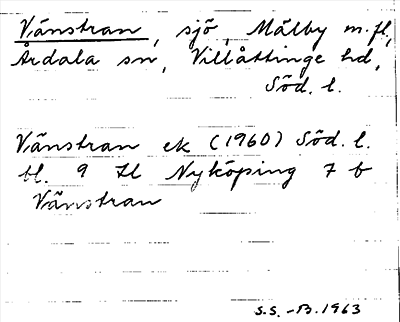 Vänstran, sjö, Mälby m.fl,
Årdala sn, Villåttinge hd,
Söd. l.
Vänstran ek (1960) Söd. l.
bl. 9 Il Nyköping 7 b
Vänstran
S.S. -B. 1963